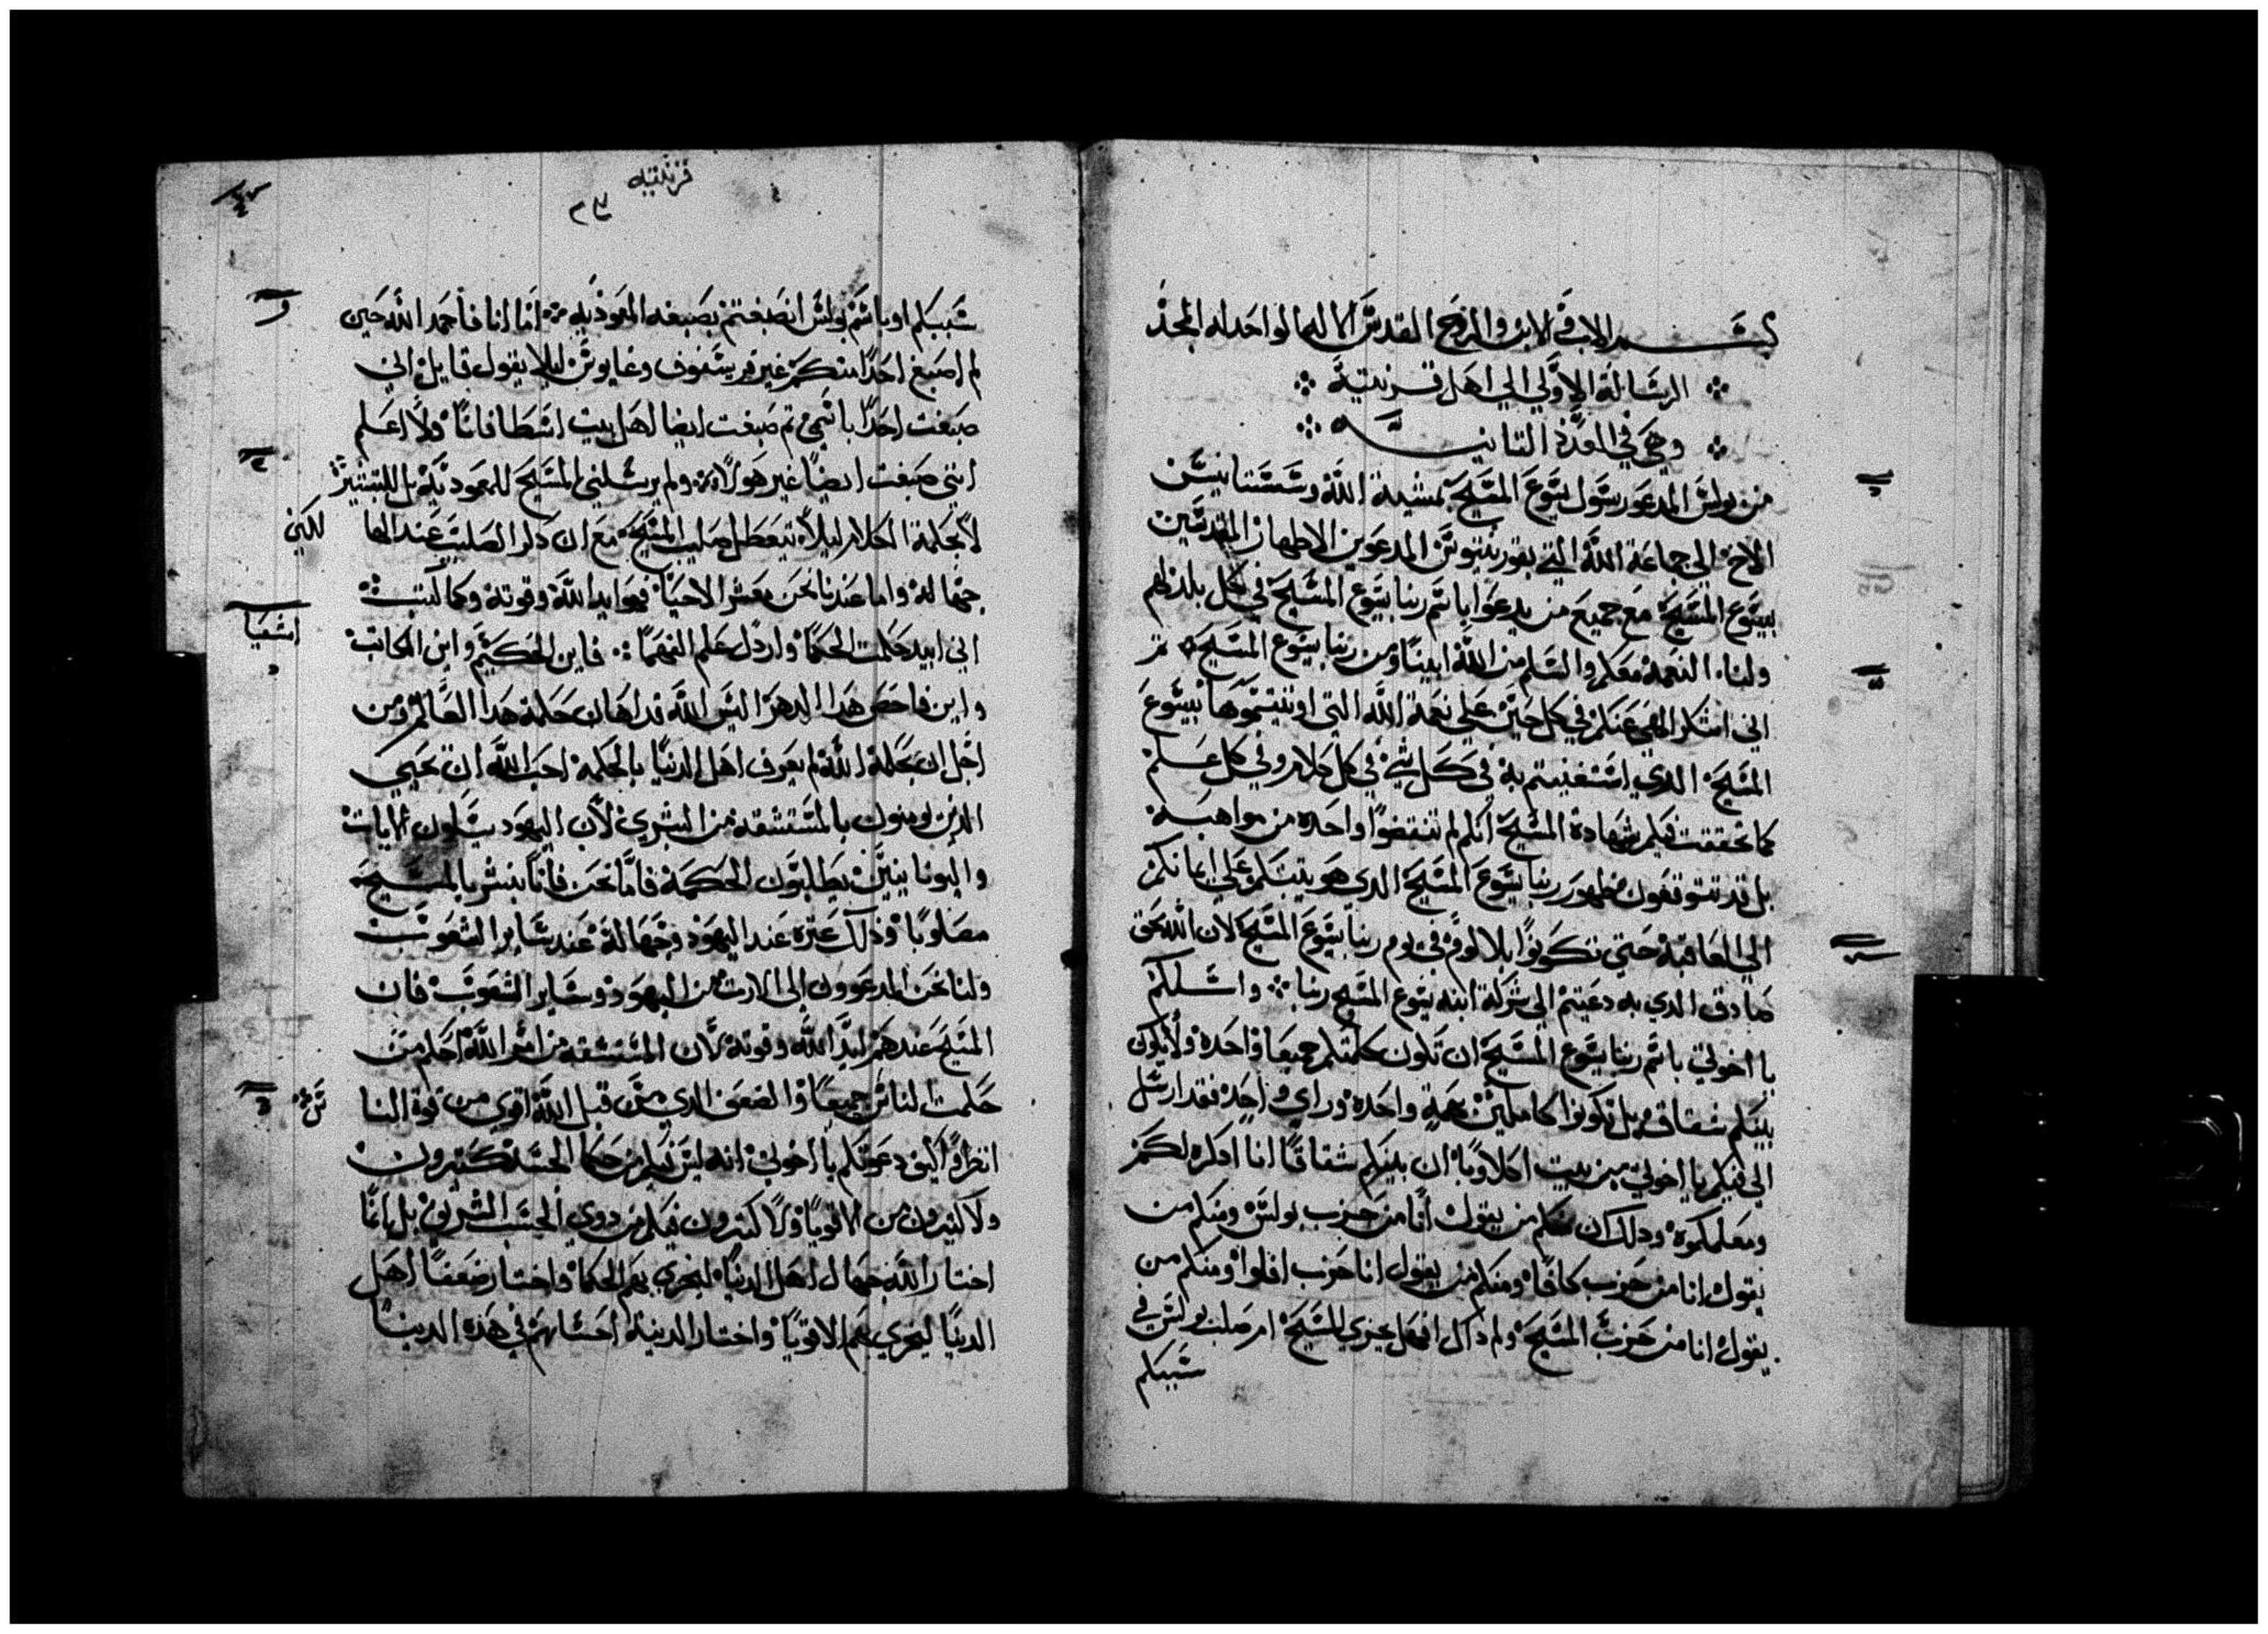 بسم الاب والابن والروح القدس الاله الواحد له المجد
الرسالة الاولي الي اهل قرنتية
وهي في العدد الثانيه
من بولس المدعو رسول يسوع المسيح بمشية الله وسستانيس
الاخ الي جماعة الله التي بقورنتيوس المدعوين الاطهار المقدسين
بيسوع المسيح مع جميع من يدعوا باسم ربنا يسوع المسيح في كل بلد لهم
ولنا النعمة معكم والسلم من الله ابينا ومن ربنا يسوع المسيح
اني اشكر الهي عنكم في كل حين علي نعمة الله التي اوتيتموها بيسوع
المسيح الدي استغنيتم به في كل شي في كل كلام وفي كل علم
كما تحققت فيكم شهادة المسيح انكم لم تنقضوا واحده من مواهبه
بل قد تتوقعون ظهور ربنا يسوع المسيح الدي هو يتبتكم علي ايمانكم
الي العاقبة حتي تكونوا بلا لوم في يوم ربنا يسوع المسيح لان الله محق
صادق الدي به دعيتم الي شركة ابنه يسوع المسيح ربنا واسلكم
يا اخوتي باسم ربنا يسوع المسيح ان تكون كلمتكم جميعا واحده ولا يكون
بينكم شقاق بل تكونوا كاملين بهمة واحده وراي واحد فقد ارسل
الي فيكم يا اخوتي من بيت اكلاويا ان بينكم شقاقا انا اذكره لكم
ومعلمكموه ودلك ان منكم من يقول انا من حزب بولس ومنكم من
يقول انا من حزب كافا ومنكم من يقول انا حزب افلوا ومنكم من
يقول انا من حزب المسيح ولم داك افهل تجزي المسيح ام صلب بولس في
سببكم
قرنتيه
٢٣
سببكم او باسم بولس انصبغتم بصبغه المعوديه اما انا فاحمد الله حين
لم اصبغ احدا منكم غير قريسفوف وغايوس ليلا يقول قايل اني
صبغت احدا باسمي تم صبغت ايضا اهل بيت اسطافانا ولا اعلم
انني صبغت ايضا غير هولاء ولم يرسلني المسيح للمعودية بل للتبشير
لا بحكمة الكلام ليلا يتعطل صليب المسيح مع ان دكر الصليب عند الها
لكين
جهالة واما عندنا نحن معشر الاحيا فهو ايد الله وقوته وكما كتب
اشعيا
اني ابيد حكمت الحكما واردل علم الفهما فاين الحكيم واين الكاتب
واين فاحص هدا الدهر اليس الله قد اهان حكمة هدا العالم ومن
اجل ان بحكمة الله لم يعرف اهل الدنيا بالحكمة احب الله ان يحيي
الذين يومنون بالمستشقه من البشري لان اليهود يسلون الايات
واليونانيين يطلبون الحكمة فاما نحن فاننا نبشر بالمسيح
مصلوبا وذلك عترة عند اليهود وجهالة عند ساير الشعوب
ولنا نحن المدعوون الي الارث من اليهود وساير الشعوب فان
المسيح عندهم ايد الله وقوته لان المستشقه من امر الله احكم من
حكمت الناس جميعا والضعف الدي من قبل الله اقوي من قوة النا
س
انظروا كيف دعوتكم يا اخوتي انه ليس فيكم من حكما الجسد كتيرون
ولا كتيرون من الاقويا ولا كتيرون فيكم من دوي الحسب الشريف بل انما
اختار الله جهال اهل الدنيا ليخزي بهم الحكما واختار ضعفا اهل
الدنيا ليخزي بهم الاقويا واختار الدنية احسابهم في هده الدنيا